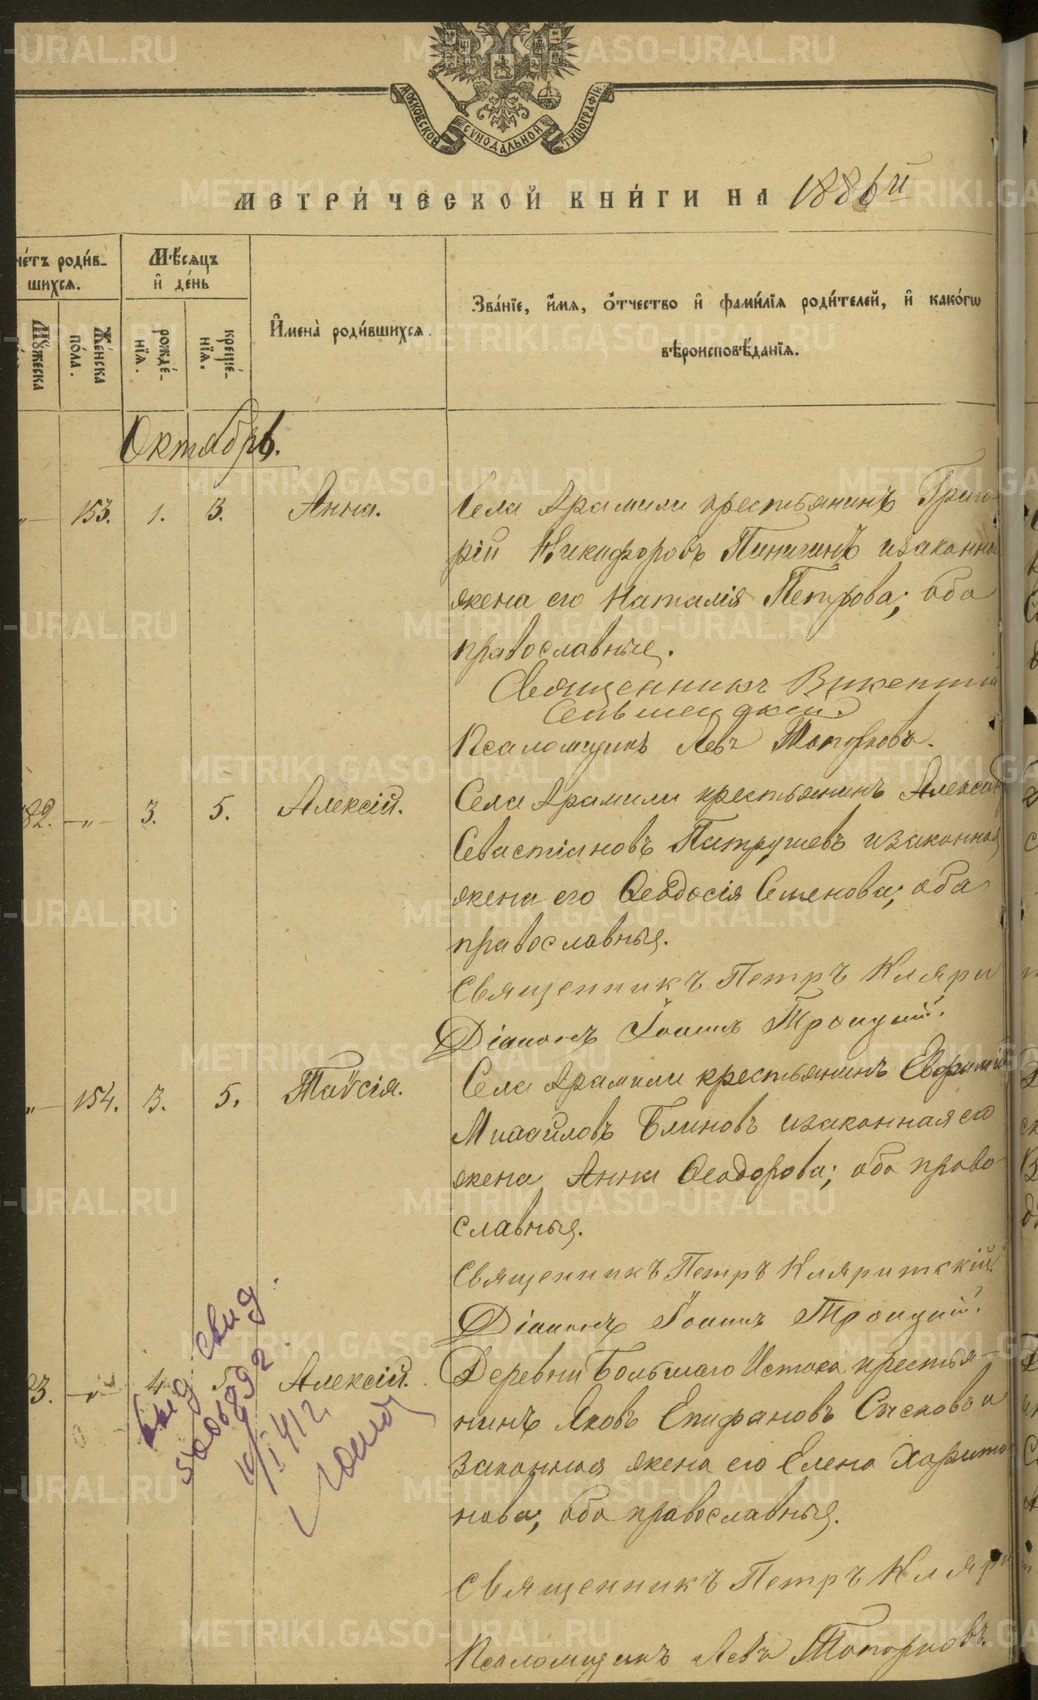 МОСКОВСКОЙ СѴНОДАЛЬНОЙ ТИПОГРАФІИ
МЕТРИ́ЧЕСКОЙ КНИ́ГИ НА 1886й
че́тъ роди́в-
шихся.
Мѣ́сяцъ
и҆ де́нь
И҆мена̀ роди́вшихся.
Зва́нїе, и҆́мя, ѻ҆́тчество и҆ фами́лїя роди́телей, и҆ како́гѡ
вѣроисповѣ́данїя.
Мꙋ́жеска
Же́нска
по́ла.
рожде́-
нїя.
креще́-
нїя.
Октябрь.
-„- 153. 1. 3. Анна. Села Арамили крестьянинъ Григо
рій Никифоровъ Пиничинъ изаконна
жена его Наталія Петрова; оба
православные.
Священникъ Викентій
Псаломщикъ Левъ Топорковъ.
82. -„- 3. 5. Алексій. Села Арамили крестьянинъ Александ
Севастіановъ Патрушевъ изаконная
жена его Ѳеодосія Семенова; оба
православныя.
Священникъ Петръ Кляри
Діаконъ Іоаннъ Троицкій.
-„- 154. 3. 5. Таисія. Села Арамили крестьянинъ Евфимій
Михайловъ Блиновъ изаконная его
жена Анна Ѳеодорова; оба право
славныя.
Священникъ Петръ Кляритскій.
Діаконъ Іоаннъ Троицкій.
3. -„- 4. 5. Алексій. Деревни Большаго Истока крестья-
нинъ Яковъ Епифановъ Сысковъ и
законная жена его Елена Харито
нова; оба православныя.
Священникъ Петръ Кляри
Псаломщикъ Левъ Топорковъ.
свид.